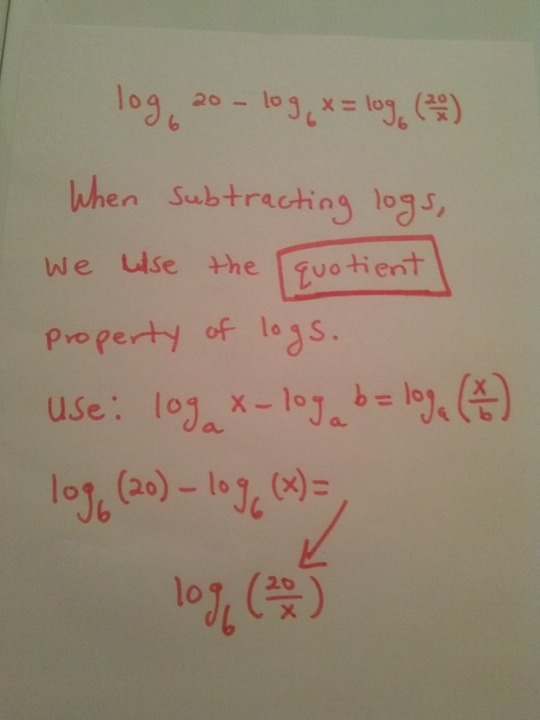 log₆ 20 - log₆ x = log₆ (20/x)
When subtracting logs,
we use the quotient
property of logs.
Use: logₐ x - logₐ b = logₐ (x/b)
log₆ (20) - log₆ (x) =
log₆ (20/x)